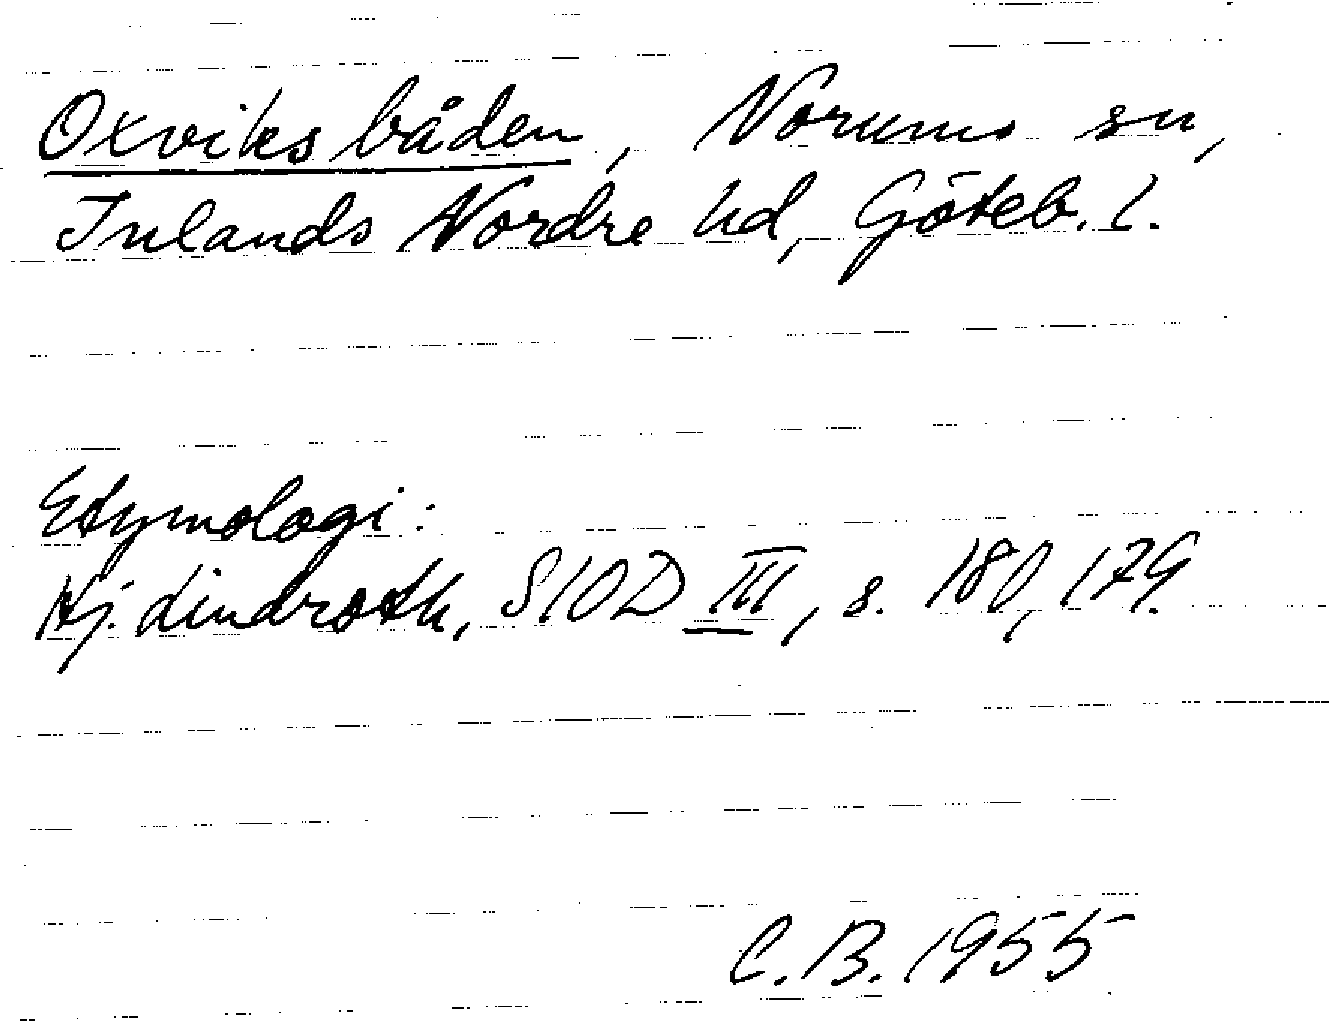 Oxviksbåden, Norums sn,
Inlands Nordre hd, Göteb. l.
Etymologi:
Hj. Lindroth, SIOD III, s. 180, 179.
C.B. 1955